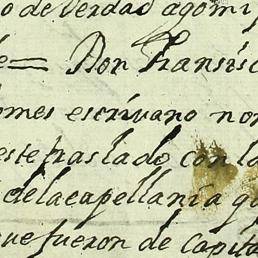 o de Verdad ago mi
e = Don Fransisc
omes escriuano no
este traslado con la
de la capellania q
que fueron de capita